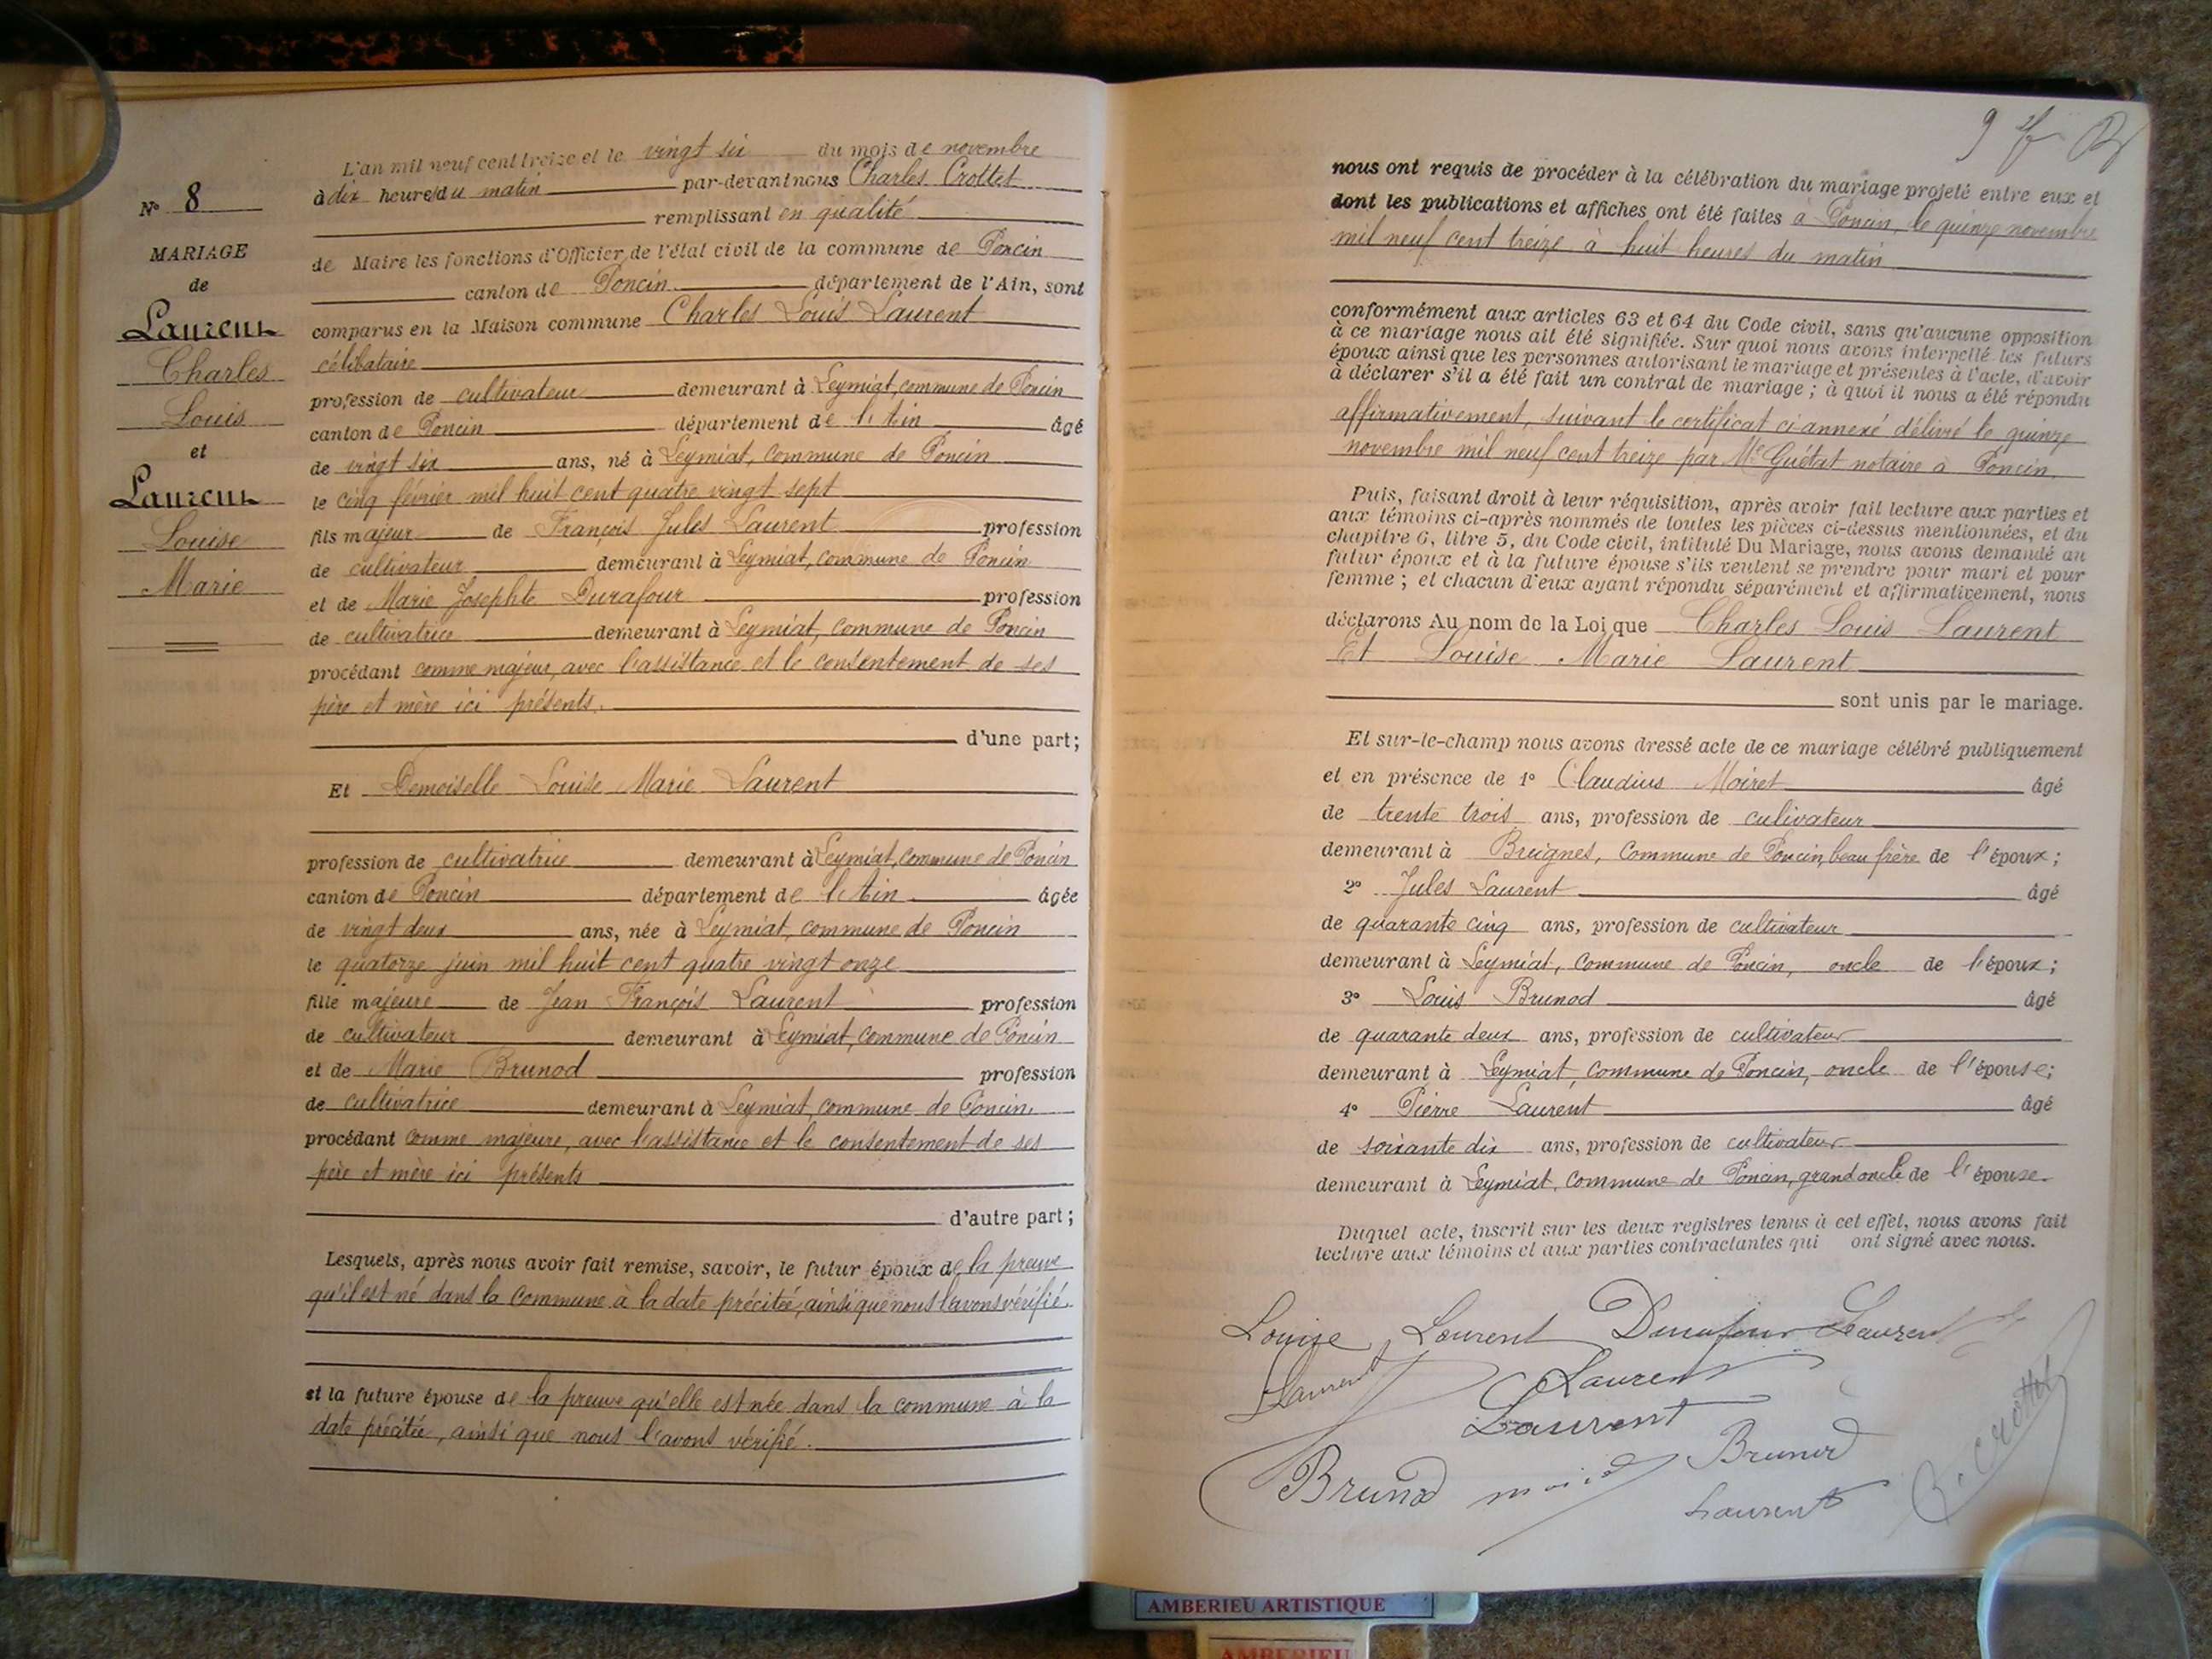 N° 8
MARIAGE
de
Laurent
Charles
Louis
et
Laurent
Louise
Marie
L'an mil neuf cent treize et le vingt six du mois de novembre
à dix heures du matin par-devant nous Charles Crottet
remplissant en qualité
de Maire les fonctions d'Officier de l'état civil de la commune de Poncin
canton de Poncin département de l'Ain, sont
comparus en la Maison commune Charles Louis Laurent
célibataire
profession de cultivateur demeurant à Leymiat, commune de Poncin
canton de Poncin département de l'Ain âgé
de vingt six ans, né à Leymiat, commune de Poncin
le cinq février mil huit cent quatre vingt sept
fils majeur de François Jules Laurent profession
de cultivateur demeurant à Leymiat, commune de Poncin
et de Marie Josephte Durafour profession
de cultivatrice demeurant à Leymiat, commune de Poncin
procédant comme majeur, avec l'assistance et le consentement de ses
père et mère ici présents.
d'une part;
Et Demoiselle Louise Marie Laurent
profession de cultivatrice demeurant à Leymiat, commune de Poncin
canton de Poncin département de l'Ain âgée
de vingt deux ans, née à Leymiat, commune de Poncin
le quatorze juin mil huit cent quatre vingt onze
fille majeure de Jean François Laurent profession
de cultivateur demeurant à Leymiat, commune de Poncin
et de Marie Brunod profession
de cultivatrice demeurant à Leymiat, commune de Poncin,
procédant comme majeure, avec l'assistance et le consentement de ses
père et mère ici présents
d'autre part;
Lesquels, après nous avoir fait remise, savoir, le futur époux de la preuve
qu'il est né dans la commune à la date précitée, ainsi que nous l'avons vérifié.
et la future épouse de la preuve qu'elle est née dans la commune à la
date précitée, ainsi que nous l'avons vérifié.
9
nous ont requis de procéder à la célébration du mariage projeté entre eux et
dont les publications et affiches ont été faites à Poncin, le quinze novembre
mil neuf cent treize à huit heures du matin
conformément aux articles 63 et 64 du Code civil, sans qu'aucune opposition
à ce mariage nous ait été signifiée. Sur quoi nous avons interpellé les futurs
époux ainsi que les personnes autorisant le mariage et présentes à l'acte, d'avoir
à déclarer s'il a été fait un contrat de mariage; à quoi il nous a été répondu
affirmativement, suivant le certificat ci-annexé délivré le quinze
novembre mil neuf cent treize par Me Guétat notaire à Poncin.
Puis, faisant droit à leur réquisition, après avoir fait lecture aux parties et
aux témoins ci-après nommés de toutes les pièces ci-dessus mentionnées, et du
chapitre 6, titre 5, du Code civil, intitulé Du Mariage, nous avons demandé au
futur époux et à la future épouse s'ils veulent se prendre pour mari et pour
femme; et chacun d'eux ayant répondu séparément et affirmativement, nous
déclarons Au nom de la Loi que Charles Louis Laurent
Et Louise Marie Laurent
sont unis par le mariage.
Et sur-le-champ nous avons dressé acte de ce mariage célébré publiquement
et en présence de 1° Claudius Moiret âgé
de trente trois ans, profession de cultivateur
demeurant à Breignes, commune de Poncin, beau frère de l'époux;
2° Jules Laurent âgé
de quarante cinq ans, profession de cultivateur
demeurant à Leymiat, commune de Poncin, oncle de l'époux;
3° Louis Brunod âgé
de quarante deux ans, profession de cultivateur
demeurant à Leymiat, commune de Poncin, oncle de l'épouse;
4° Pierre Laurent âgé
de soixante dix ans, profession de cultivateur
demeurant à Leymiat, commune de Poncin, grand oncle de l'épouse.
Duquel acte, inscrit sur les deux registres tenus à cet effet, nous avons fait
lecture aux témoins et aux parties contractantes qui ont signé avec nous.
Louise Laurent Durafour Laurent
Laurent Laurent
Laurent
Brunod Brunod
Laurent
C. Crottet
AMBERIEU ARTISTIQUE
AMBERIEU